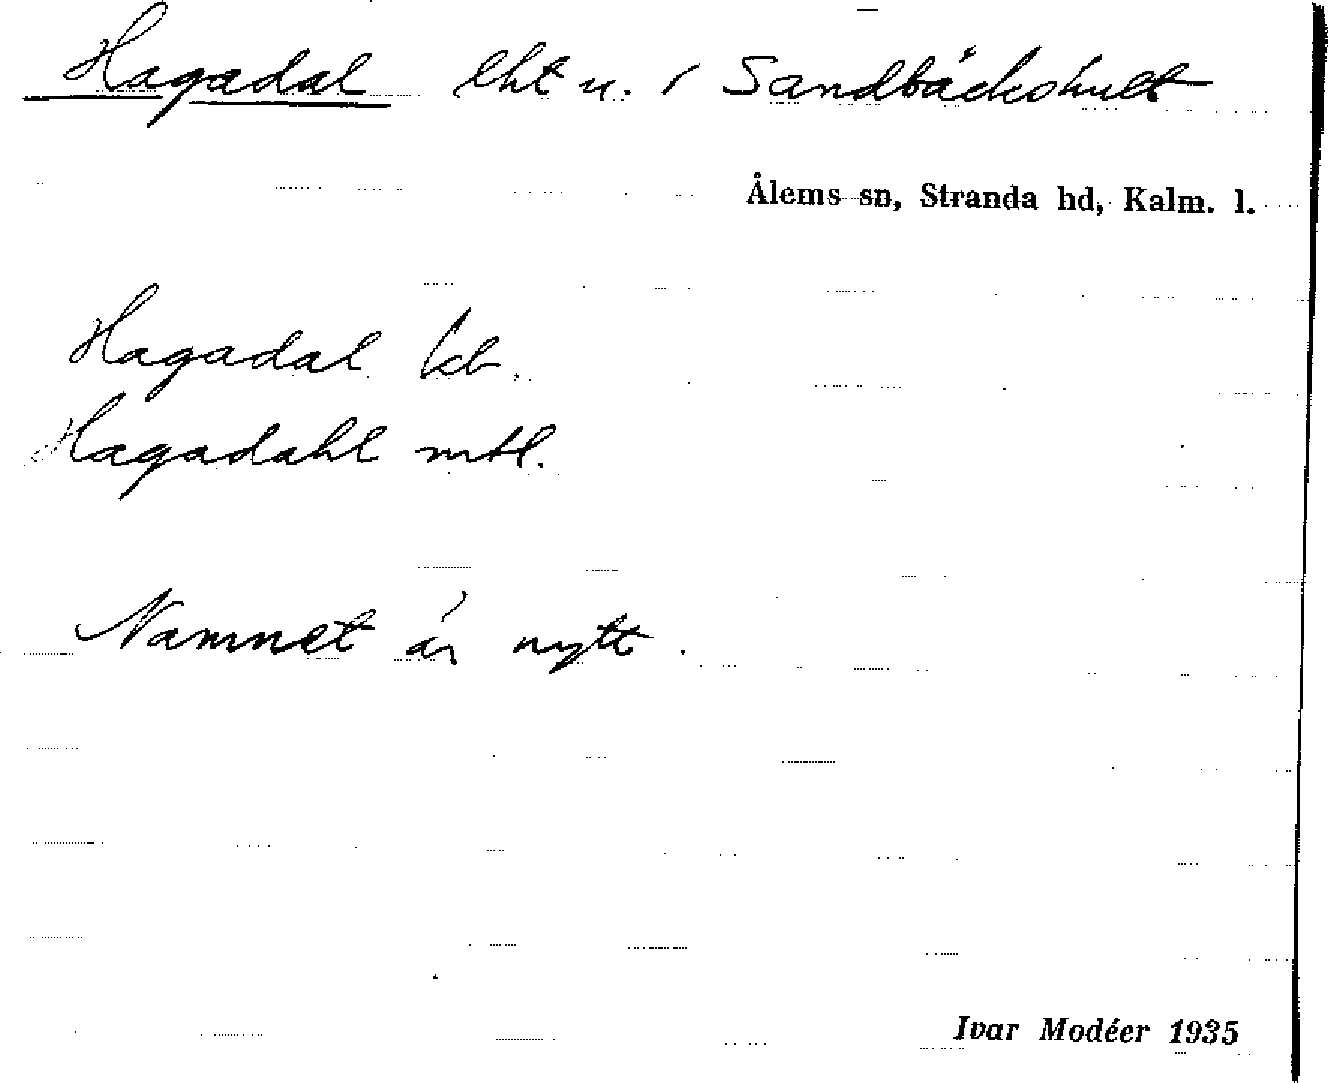 Hagadal lht u. i Sandbäckshult
Ålems sn, Stranda hd, Kalm. l.
Hagadal kb.
Hagadahl mtl.
Namnet är nytt.
Ivar Modéer 1935